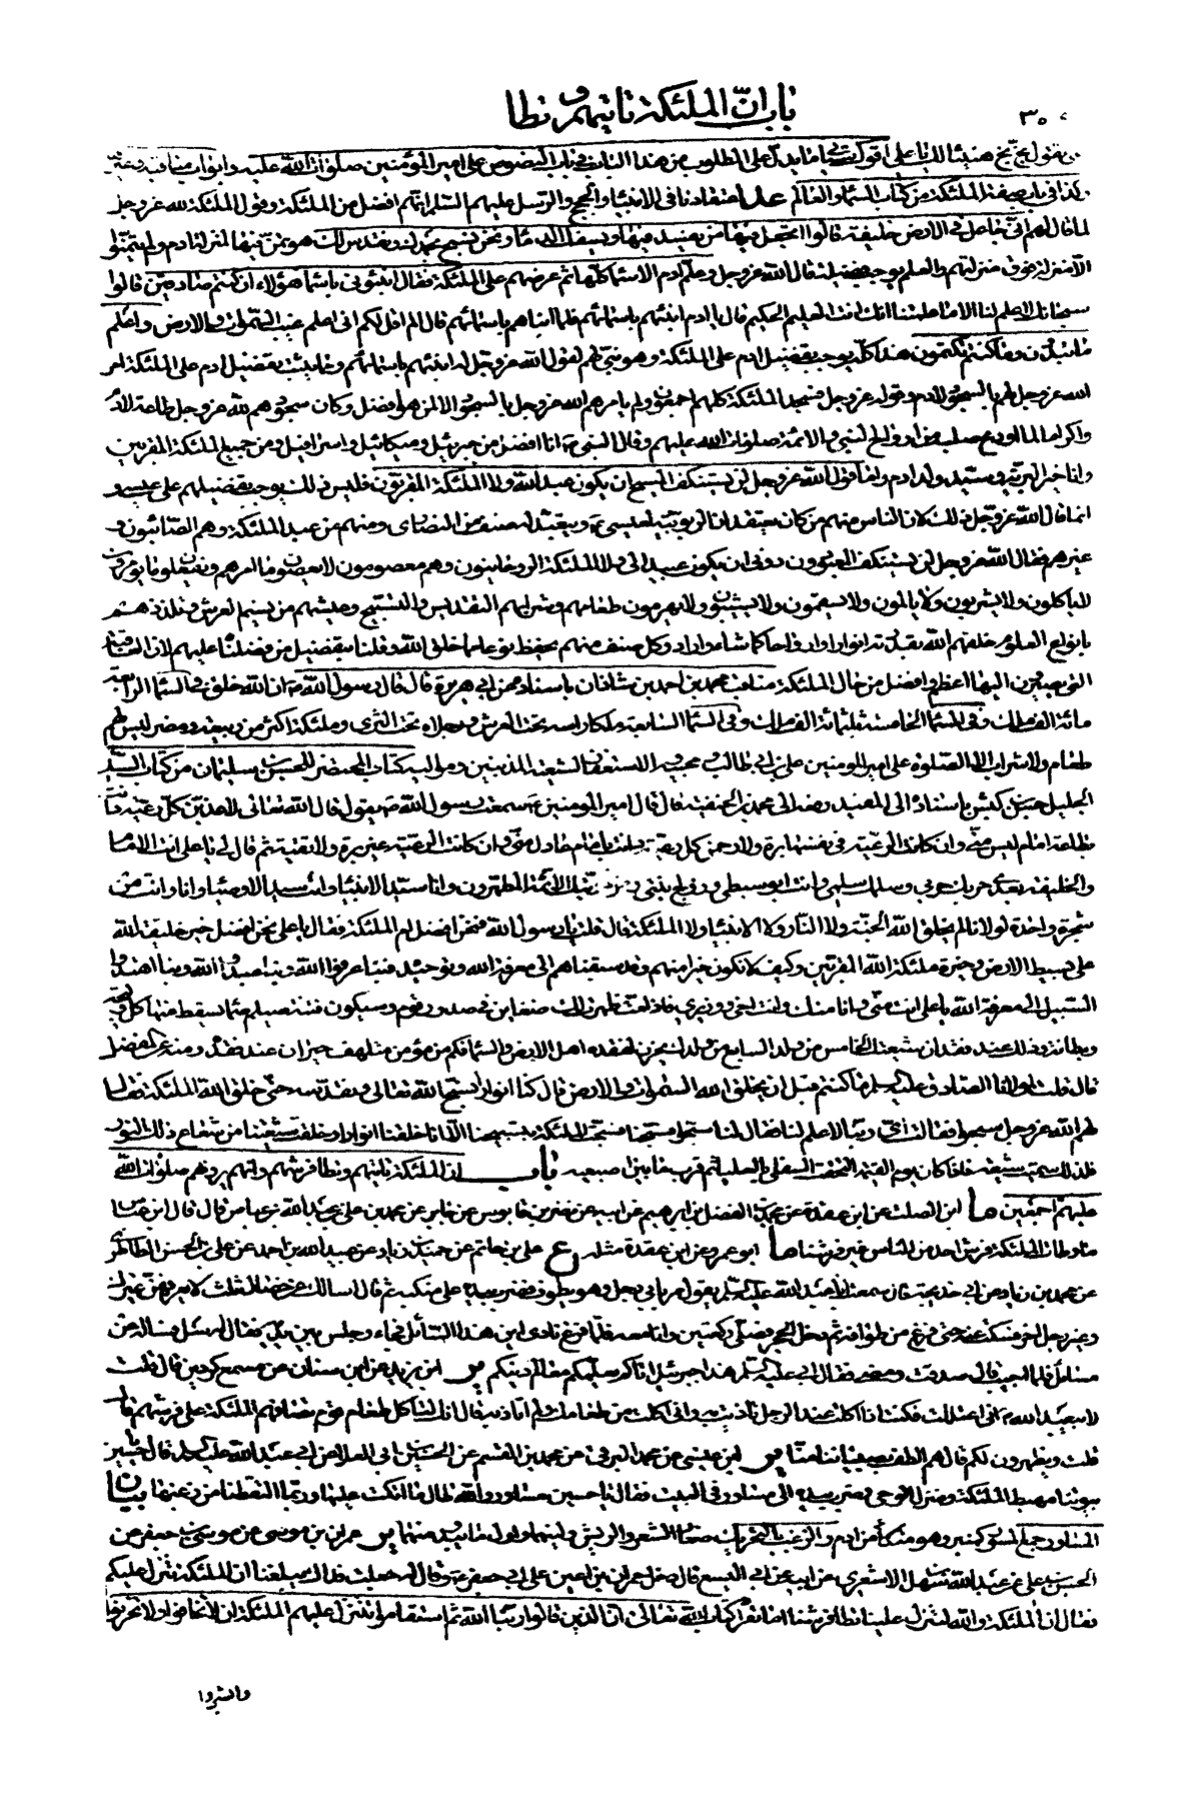 باب ان الملئكة تاتيهم و تطا
٣٥٠
يقول بخ بخ هنيئا لك يا على اقول قد ياتى ما يدل على المطلوب من هذا الباب فى باب النصوص على امير المؤمنين صلوات الله عليه وابواب مناقبه وغير
ذلك فى باب صفة الملئكة من كتاب السماء والعالم عد اعتقادنا فى الانبياء والحجج والرسل عليهم السلم انهم افضل من الملئكة وقول الملئكة لله عز وجل
لما قال لهم انى جاعل فى الارض خليفة قالوا اتجعل فيها من يفسد فيها ويسفك الدماء ونحن نسبح بحمدك ونقدس لك هو تمنى فيها لمنزلة ادم ولم يتمنوا
الا منزلة فوق منزلتهم والعلم يوجب فضيلة قال الله عز وجل وعلم ادم الاسماء كلها ثم عرضهم على الملئكة فقال انبئونى باسماء هؤلاء ان كنتم صادقين قالوا
سبحانك لا علم لنا الا ما علمتنا انك انت العليم الحكيم قال يا ادم انبئهم باسمائهم فلما انباهم باسمائهم قال الم اقل لكم انى اعلم غيب السموات والارض واعلم
ما تبدون وما كنتم تكتمون هذا كله يوجب تفضيل ادم على الملئكة وهو نبى لهم لقول الله عز وجل له انبئهم باسمائهم ومما يثبت تفضيل ادم على الملئكة امر
الله عز وجل لهم بالسجود لادم وقوله عز وجل فسجد الملئكة كلهم اجمعون ولم يامرهم الله عز وجل بالسجود الا لمن هو افضل وكان سجودهم لله عز وجل طاعة لادم
واكراما لما اودع صلبه من ارواح النبى والائمة صلوات الله عليهم وقال النبى ص انا افضل من جبرئيل وميكائيل واسرافيل ومن جميع الملئكة المقربين
وانا خير البرية وسيد ولد ادم واما قول الله عز وجل لن يستنكف المسيح ان يكون عبدا لله ولا الملئكة المقربون فليس ذلك يوجب تفضيلهم على عيسى و
انما قال الله عز وجل ذلك لان الناس منهم من كان يعتقد ان الربوبية لعيسى ع ويتعبد له صنف من النصارى ومنهم من عبد الملئكة وهم الصابئون و
غيرهم فقال الله عز وجل لن يستنكف المعبودون دونى ان يكونوا عبيدا لى والملئكة الروحانيون وهم معصومون لا يعصون ما امرهم ويفعلون ما يؤمرون
لا ياكلون ولا يشربون ولا يالمون ولا يسقمون ولا يشيبون ولا يهرمون طعامهم وشرابهم التقديس والتسبيح وعيشهم من نسيم العرش وتلذذهم
بانواع العلوم خلقهم الله بقدرته انوارا وارواحا كما شاء واراد وكل صنف منهم يحفظ نوعا مما خلق الله وقلنا بتفضيل من فضلنا عليهم لان الحال
التى يصيرون اليها اعظم وافضل من حال الملئكة مناقب محمد بن احمد بن شاذان باسناده عن ابى هريرة قال قال رسول الله ص ان الله خلق فى السماء الرابعة
مائة الف ملك وفى السماء الخامسة ثلثمائة الف ملك وفى السماء السابعة ملكا راسه تحت العرش ورجلاه تحت الثرى وملئكة اكثر من ربيعة ومضر ليس لهم
طعام ولا شراب الا الصلوة على امير المؤمنين على بن ابى طالب ومحبيه والاستغفار لشيعته المذنبين ومواليه كتاب المحتضر للحسن بن سليمان من كتاب السيد
الجليل حسن بن كبش باسناده الى المفيد رفعه الى محمد بن الحنفية قال قال امير المؤمنين ع سمعت رسول الله ص يقول قال الله تعالى لاعذبن كل رعية دانت
بطاعة امام ليس منى وان كانت الرعية فى نفسها برة ولارحمن كل رعية دانت بامام عادل منى وان كانت الرعية غير برة ولا تقية ثم قال لى يا على انت الامام
والخليفة بعدى حربك حربى وسلمك سلمى وانت ابو سبطى وزوج ابنتى ذريتك الائمة المطهرون وانا سيد الانبياء وانت سيد الاوصياء وانا وانت من
شجرة واحدة لولانا لم يخلق الله الجنة ولا النار ولا الانبياء ولا الملئكة قال قلت يا رسول الله فنحن افضل ام الملئكة فقال يا على نحن افضل خير خليقة الله
على بسيط الارض وخيرة ملئكة الله المقربين وكيف لا نكون خيرا منهم وقد سبقناهم الى معرفة الله وتوحيده فبنا عرفوا الله وبنا عبدوا الله وبنا اهتدوا
السبيل الى معرفة الله يا على انت منى وانا منك وانت اخى ووزيرى فاذا مت ظهرت لك ضغاين فى صدور قوم وسيكون فتنة صيلم صماء يسقط منها كل وليجة
وبطانة وذلك عند فقدان شيعتك الخامس من ولد السابع من ولدك يحزن لفقده اهل الارض والسماء فكم من مؤمن متلهف حيران عند فقده ومنه عن المفضل
قال قلت لمولانا الصادق عليه السلم ما كنتم قبل ان يخلق الله السموات والارض قال كنا انوارا نسبح الله تعالى ونقدسه حتى خلق الله الملئكة فقال
لهم الله عز وجل سبحوا فقالت اى ربنا لا علم لنا فقال لنا سبحوا فسبحنا فسبحت الملئكة بتسبيحنا الا انا خلقنا انوارا وخلقت شيعتنا من شعاع ذلك النور
فلذلك سميت شيعة فاذا كان يوم القيمة التحقت السفلى بالعليا ثم قرب ما بين اصبعيه باب ان الملئكة تاتيهم وتطا فرشهم وانهم يرونهم صلوات الله
عليهم اجمعين ما ابن الصلت عن ابن عقدة عن الفضل بن ابراهيم عن ابيه عن بن قابوس عن جابر عن محمد بن على عن عبد الله بن عباس قال قال ابن عباس
ما وطات الملئكة فرش احد من الناس غير فرشنا ما ابو عمرو عن ابن عقدة مثله ع على بن حاتم عن حميد بن زياد عن عبيد الله بن احمد عن على بن الحسن الطاطرى
عن محمد بن زياد عن ابى خديجة قال سمعت ابا عبد الله عليه السلم يقول مر بابى رجل وهو يطوف فضرب بيده على منكبه ثم قال اسالك عن خصال ثلث لا يعرفهن غيرك
وغير رجل اخر فسكت عنه حتى فرغ من طوافه ثم دخل الحجر فصلى ركعتين وانا معه فلما فرغ نادى اين هذا السائل فجاء وجلس بين يديه فقال له سل فساله عن
مسائل فلما اجيب قال صدقت ومضى فقال ابى عليه السلم هذا جبرئيل اتاكم يعلمكم معالم دينكم ير ابن يزيد عن ابن سنان عن مسمع كردين قال قلت
لابى عبد الله ع انى اعتللت فكنت اذا اكلت عند الرجل تاذيت به وانى اكلت من طعامك ولم اتاذ به قال انك لتاكل طعام قوم تصافحهم الملئكة على فرشهم قال
قلت ويظهرون لكم قال هم الطف بصبياننا منا ير ابن عيسى عن محمد البرقى عن محمد بن القسم عن الحسين بن ابى العلا عن ابى عبد الله عليه السلم قال يا حسين
بيوتنا مهبط الملئكة ومنزل الوحى وضرب بيده الى مساور فى البيت فقال يا حسين مساور والله طال ما اتكت عليها وربما التقطنا من زغبها بيان
المساور جمع المسور كمنبر وهو متكأ من ادم والزغب بالتحريك صغار الشعر والريش ولينهما واول ما يبدو منهما ير عمران بن موسى عن موسى بن جعفر عن
الحسن بن على عن عبد الله بن سهل الاشعرى عن ابيه عن ابى اليسع قال دخل حمران بن اعين على ابى جعفر ع وقال له جعلت فداك يبلغنا ان الملئكة تنزل عليكم
فقال ان الملئكة والله لتنزل علينا تطا فرشنا اما تقرأ كتاب الله تعالى ان الذين قالوا ربنا الله ثم استقاموا تتنزل عليهم الملئكة ان لا تخافوا ولا تحزنوا
وابشروا